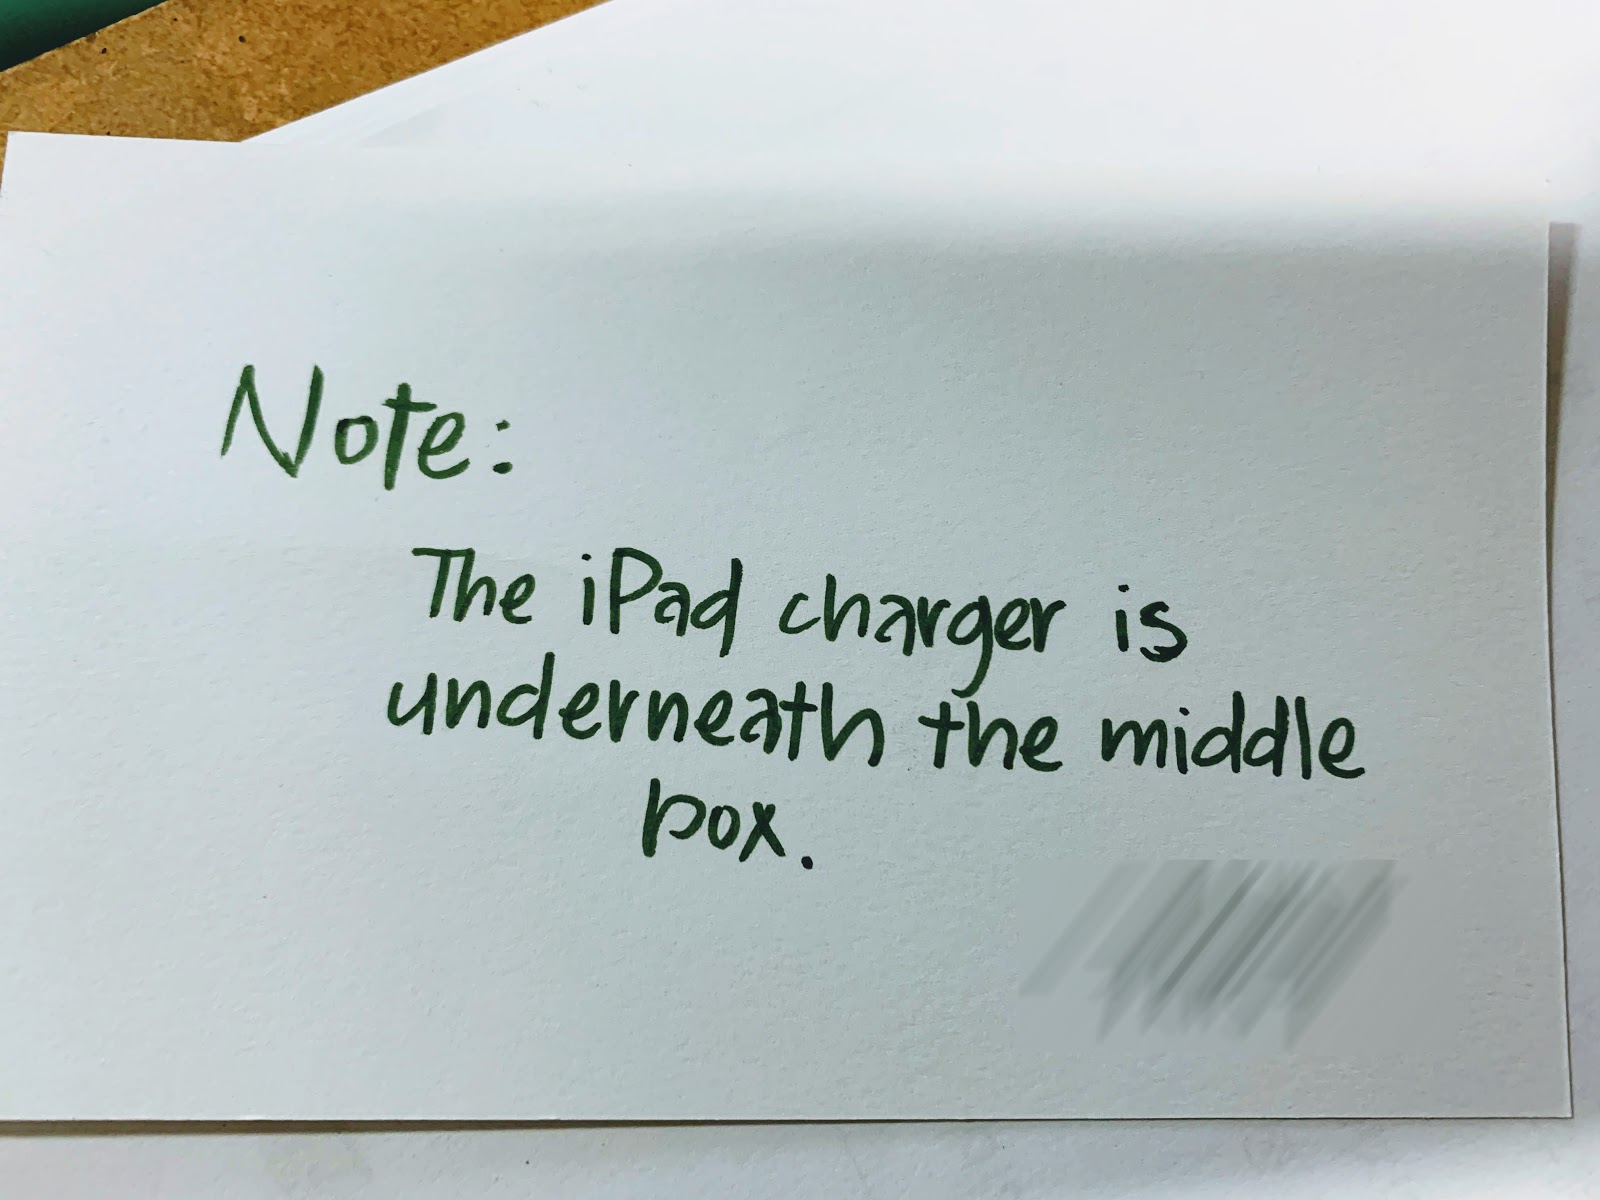 Note:
The iPad charger is
underneath the middle
box.